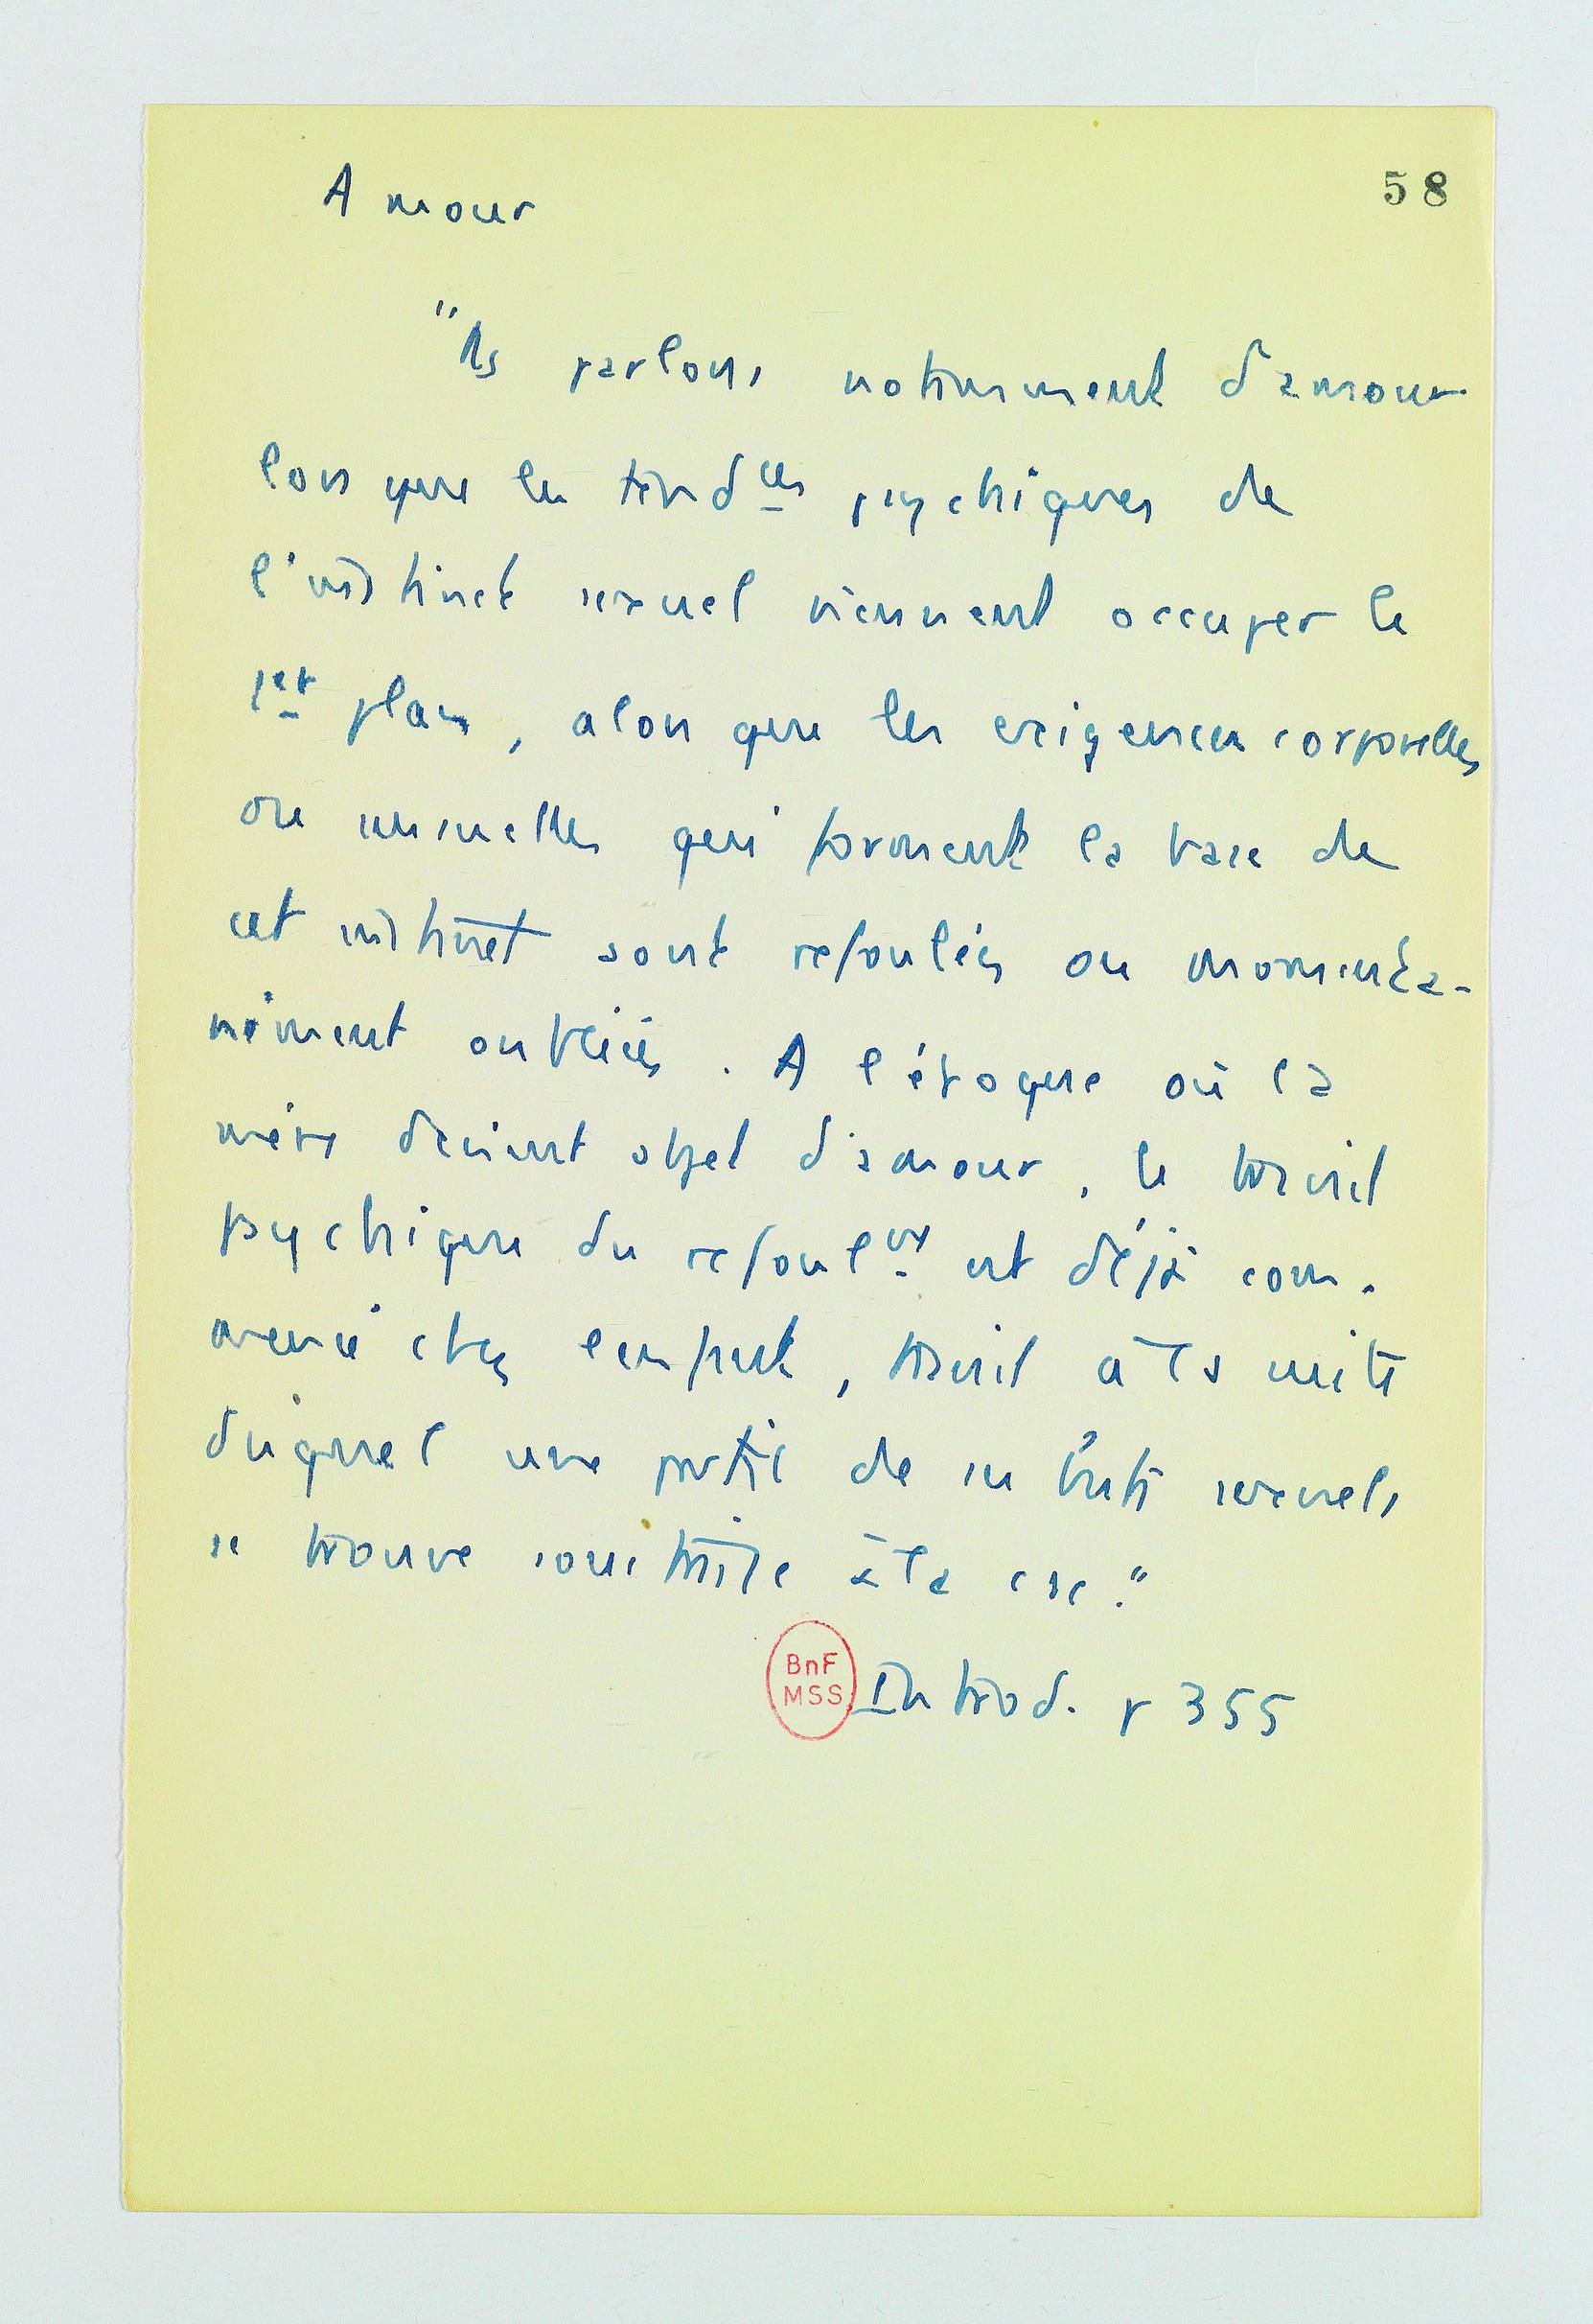 Amour
58
"Ns parlons notamment d'amour
lorsque les tendces psychiques de
l'instinct sexuel viennent occuper le
1er plan, alors que les exigences corporelles
ou sensuelles qui forment la base de
cet instinct sont refoulées ou momenta-
nément oubliées. A l'époque où la
mère devient objet d'amour, le travail
psychique du refoult est déjà com-
mencé chez l'enfant, travail à la suite
duquel une partie de ses buts sexuels
se trouve soustraite à la csc."
BnF
MSS
Introd. p 355